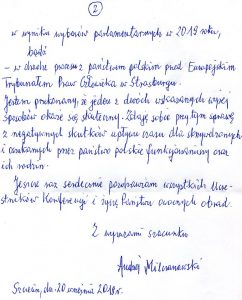 2
w wyniku wyborów parlamentarnych w 2019 roku,
bądź
– w drodze procesu z państwem polskim przed Europejskim
Trybunałem Praw Człowieka w Strasburgu.
Jestem przekonany, że jeden z dwóch wskazanych wyżej
sposobów okaże się skuteczny. Zdaję sobie przy tym sprawę
z negatywnych skutków upływu czasu dla skrzywdzonych
i oszukanych przez państwo polskie funkcjonariuszy oraz
ich rodzin.
Jeszcze raz serdecznie pozdrawiam wszystkich Ucze-
stników Konferencji i życzę Państwu owocnych obrad.
Z wyrazami szacunku
Andrzej Milczanowski
Szczecin, dn. 20 września 2018 r.